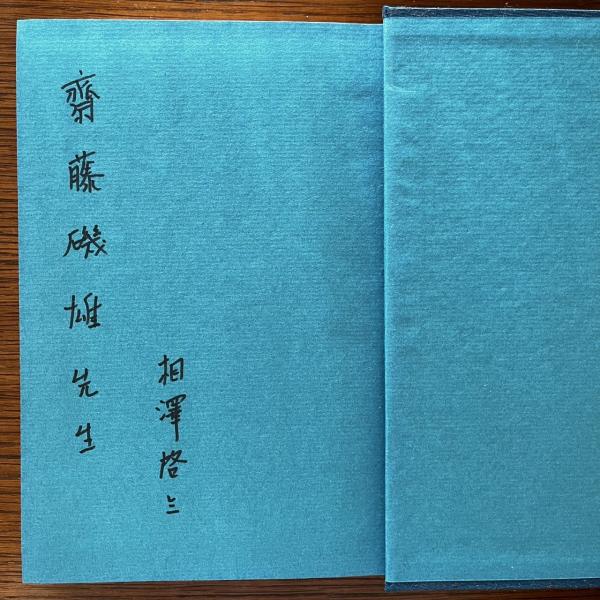 齋藤磯雄先生
相澤啓三